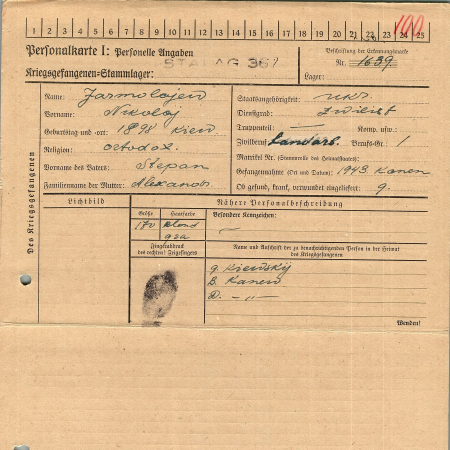 1 2 3 4 5 6 7 8 9 10 11 12 13 14 15 16 17 18 19 20 21 22 23 24 25
Personalkarte I: Personelle Angaben
Kriegsgefangenen-Stammlager: STALAG 367
Beschriftung der Erkennungsmarke
Nr. 1639
Lager:
Des Kriegsgefangenen
Name: Jarmolojen
Vorname: Nikolaj
Geburtstag und -ort: 1898 Kiew
Religion: ortodox.
Vorname des Vaters: Stepan
Familienname der Mutter: Alexandr
Staatsangehörigkeit: ukr.
Dienstgrad: Zivilist
Truppenteil: — Komp. usw.:
Zivilberuf: Landarb. Berufs-Gr.: 1
Matrikel Nr. (Stammrolle des Heimatstaates):
Gefangennahme (Ort und Datum): 1943 Kanew
Ob gesund, krank, verwundet eingeliefert: g.
Lichtbild
Nähere Personalbeschreibung
Größe Haarfarbe
170 blond
Besondere Kennzeichen:
Fingerabdruck
des rechten! Zeigefingers
Name und Anschrift der zu benachrichtigenden Person in der Heimat
des Kriegsgefangenen
G. Kiewskij
B. Kanew
D. — „ —
Wenden!